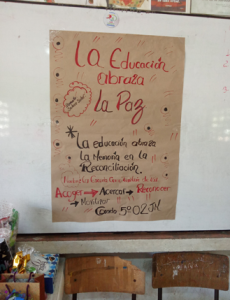 La Educación
abraza
La Paz
La educación abraza
La Memoria en la
Reconciliación.
Acoger → Acercar → Reconocer
→ Movilizar
Grado 5º02 JM